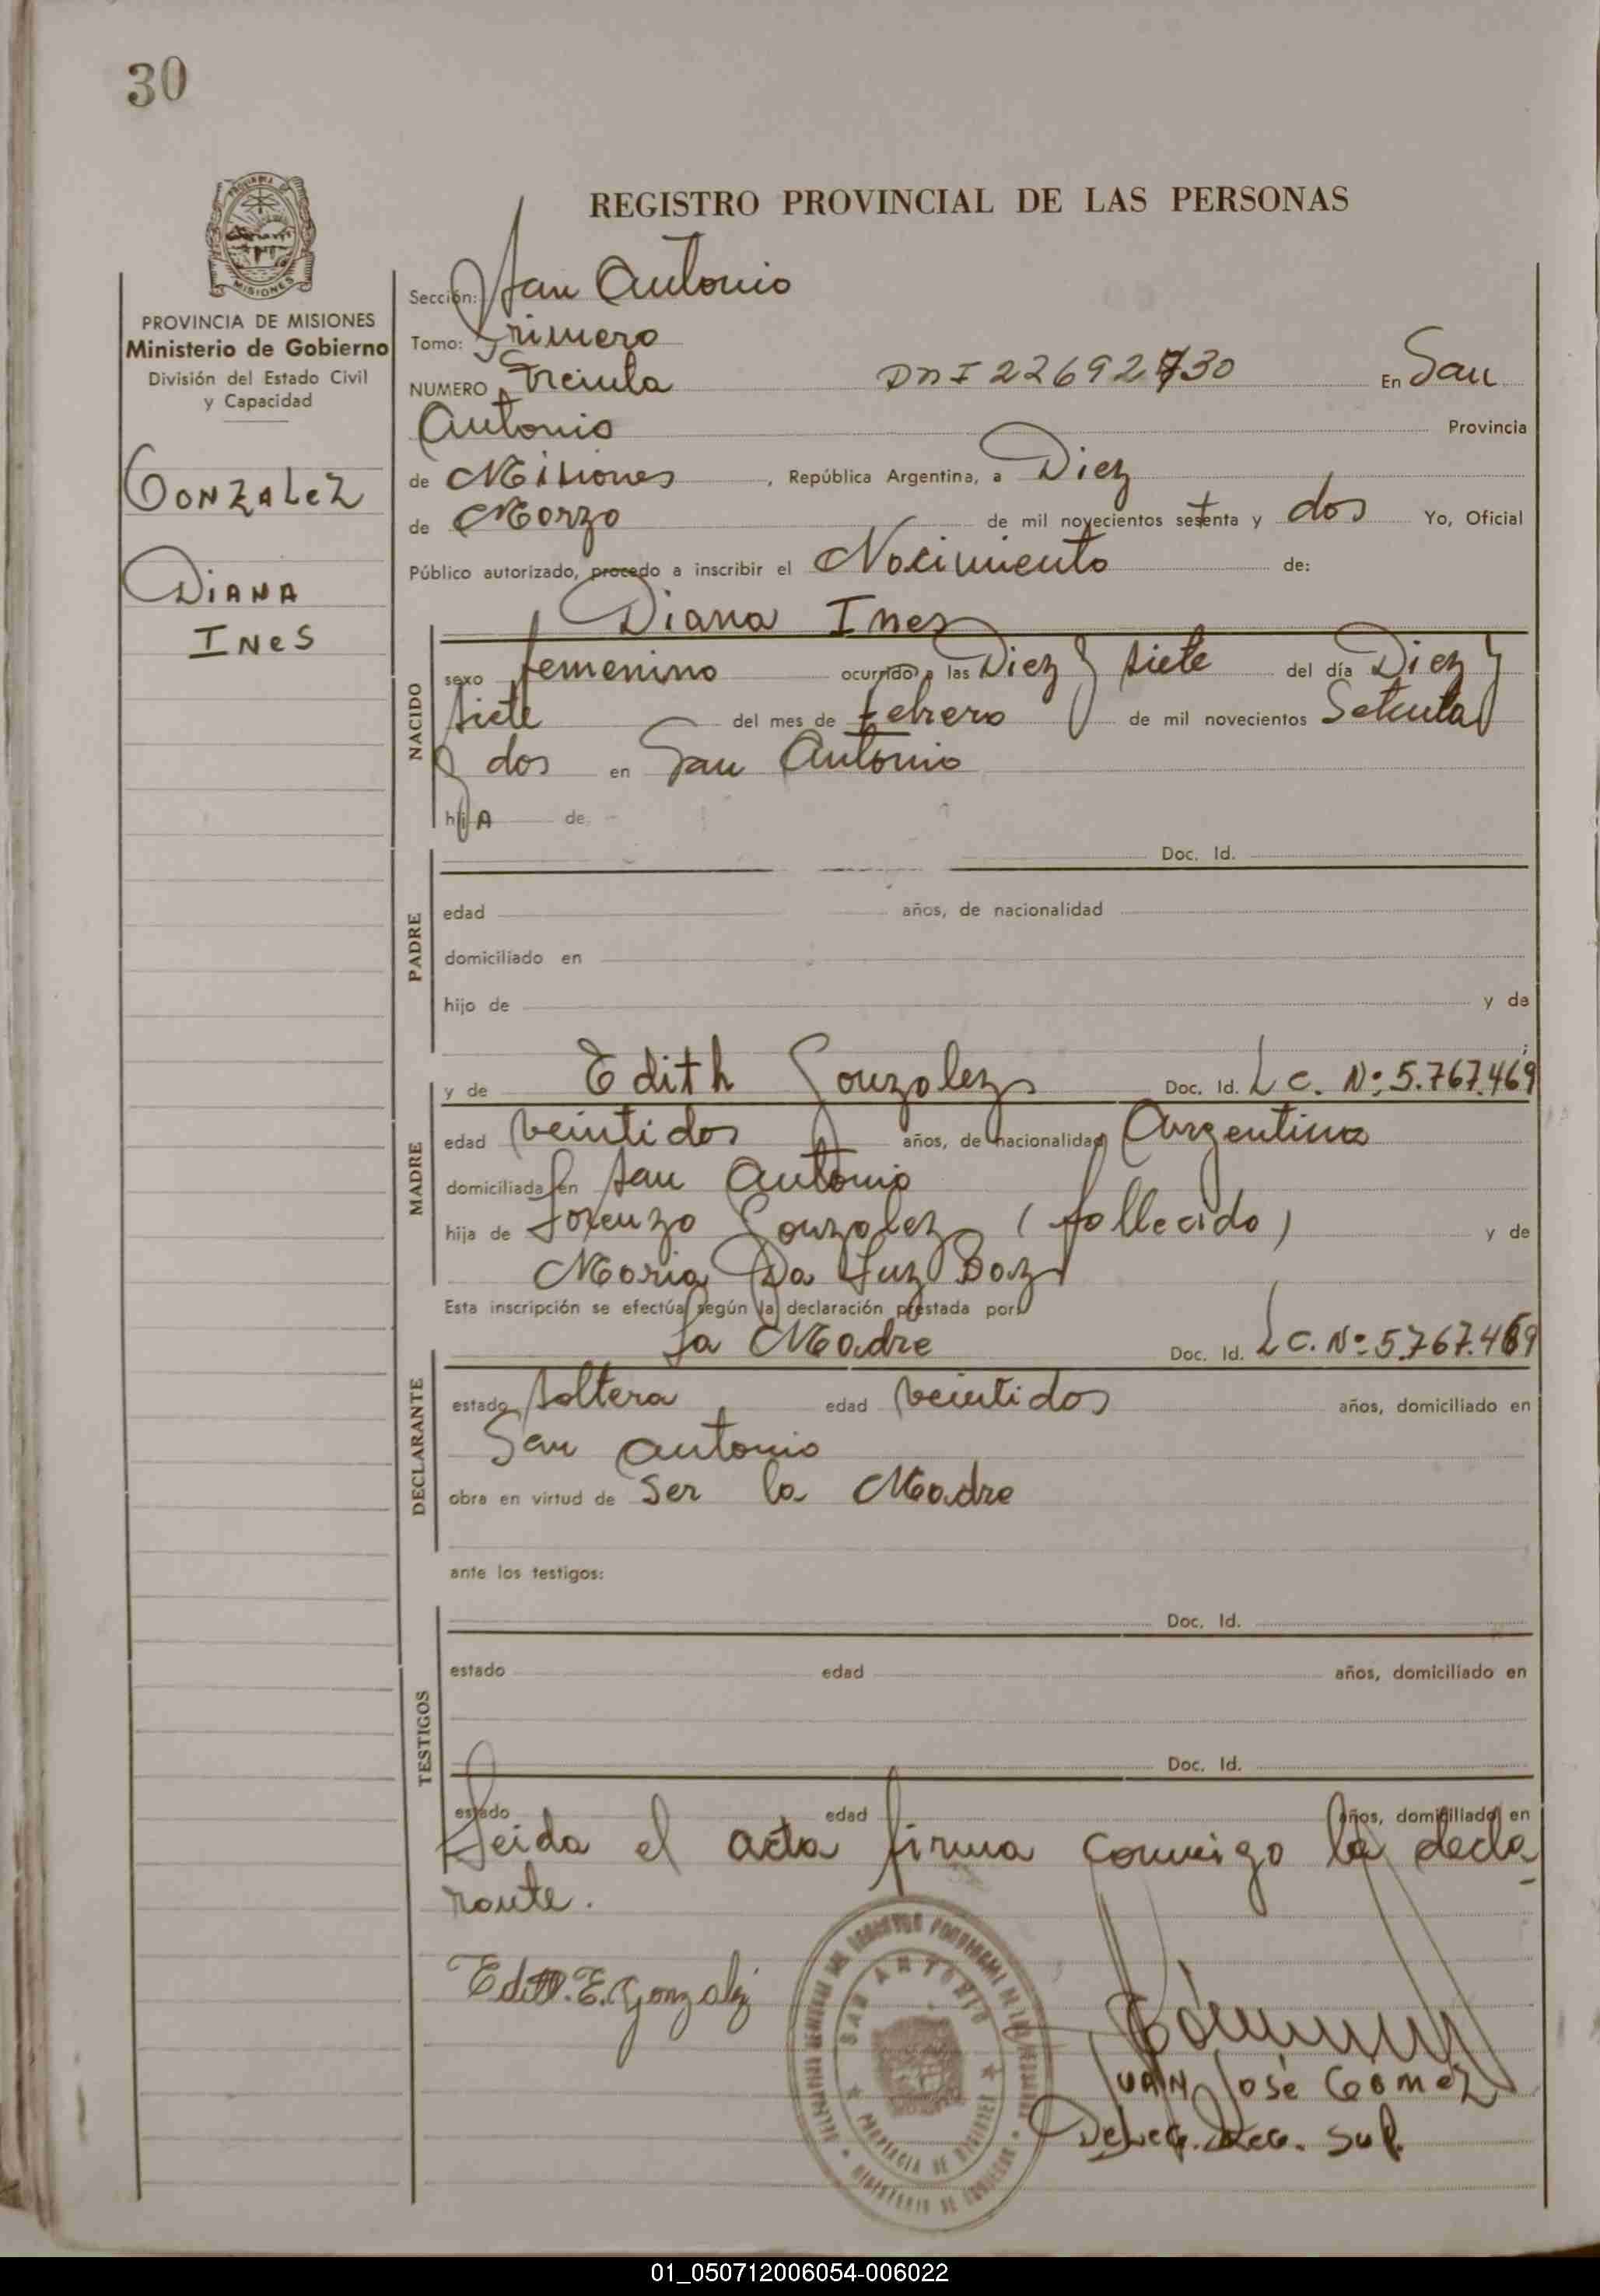 30
REGISTRO PROVINCIAL DE LAS PERSONAS
MISIONES
PROVINCIA DE MISIONES
Ministerio de Gobierno
División del Estado Civil
y Capacidad
GONZALEZ
DIANA
INES
Sección: San Antonio
Tomo: Primero
NUMERO Treinta DNI 22692730 En San
Antonio Provincia
de Misiones, República Argentina, a Diez
de Marzo de mil novecientos setenta y dos Yo, Oficial
Público autorizado, procedo a inscribir el Nacimiento de:
Diana Ines
NACIDO
sexo femenino ocurrido a las Diez y siete del día Diez y
siete del mes de febrero de mil novecientos Setenta
y dos en San Antonio
hijA de
Doc. Id.
PADRE
edad años, de nacionalidad
domiciliado en
hijo de y de
;
y de Edith Gonzalez Doc. Id. L C. Nº 5.767.469
MADRE
edad veintidos años, de nacionalidad Argentina
domiciliada en San Antonio
hija de Lorenzo Gonzalez (fallecido) y de
Maria Da Luz Baz
Esta inscripción se efectúa según la declaración prestada por:
La Madre Doc. Id. L C. Nº 5.767.469
DECLARANTE
estado soltera edad veintidos años, domiciliado en
San Antonio
obra en virtud de Ser la Madre
ante los testigos:
Doc. Id.
TESTIGOS
estado edad años, domiciliado en
Doc. Id.
estado edad años, domiciliado en
Leida el acta firma conmigo la decla
rante.
Edith.E.Gonzalez
SAN ANTONIO
PROVINCIA DE MISIONES
MINISTERIO DE GOBIERNO
JUAN JOSÉ GÓMEZ
DELEG. REG. SUP.
01_050712006054-006022